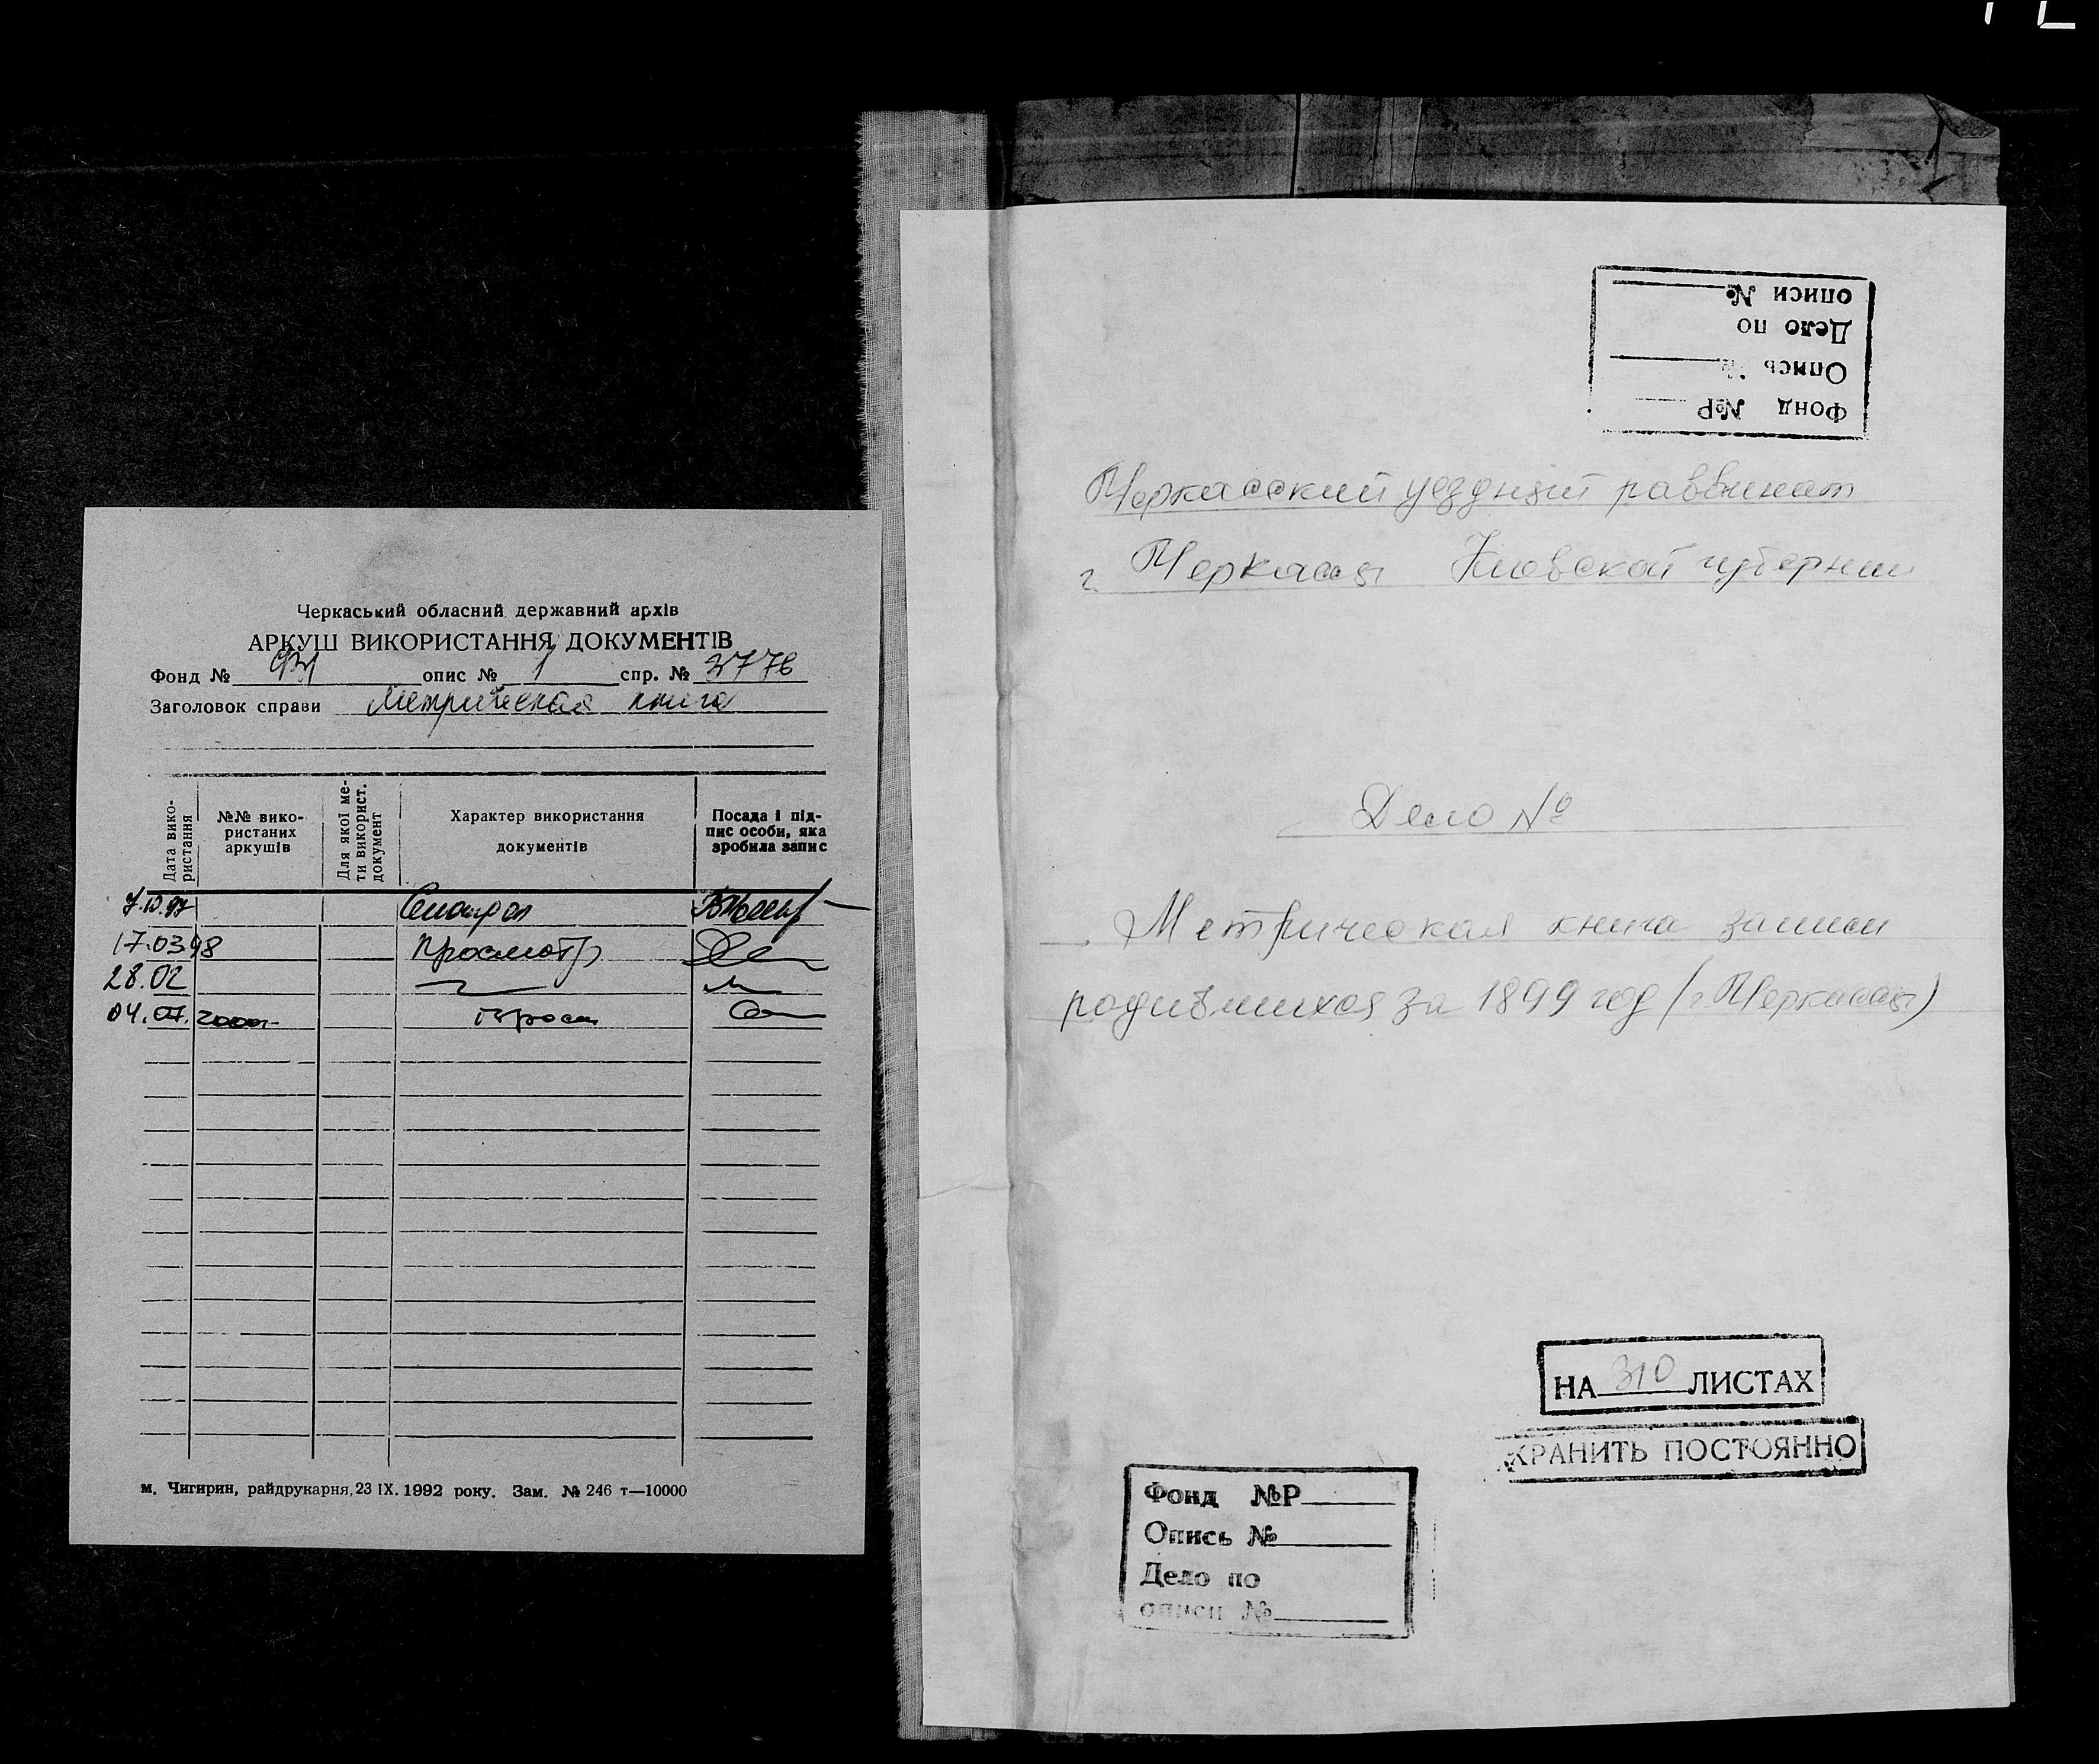 Черкаський обласний державний архів
АРКУШ ВИКОРИСТАННЯ ДОКУМЕНТІВ
Фонд № опис № 1 спр. № 3776
Заголовок справи Метрическая книга
Дата вико-
ристання
№№ вико-
ристаних
аркушів
Для якої ме-
ти використ.
документ
Характер використання
документів
Посада і під-
пис особи, яка
зробила запис
7.10.97
17.03.98 Просмотр
28.02
04.07. 2000г.
м. Чигирин, райдрукарня, 23 IX. 1992 року. Зам. № 246 т—10000
Фонд №Р
Опись №
Дело по
описи №
Черкасский уездный раввинат
г. Черкассы Киевской губернии
Дело №
Метрическая книга записи
родившихся за 1899 год (г. Черкассы)
НА 310 ЛИСТАХ
ХРАНИТЬ ПОСТОЯННО
Фонд №Р
Опись №
Дело по
описи №